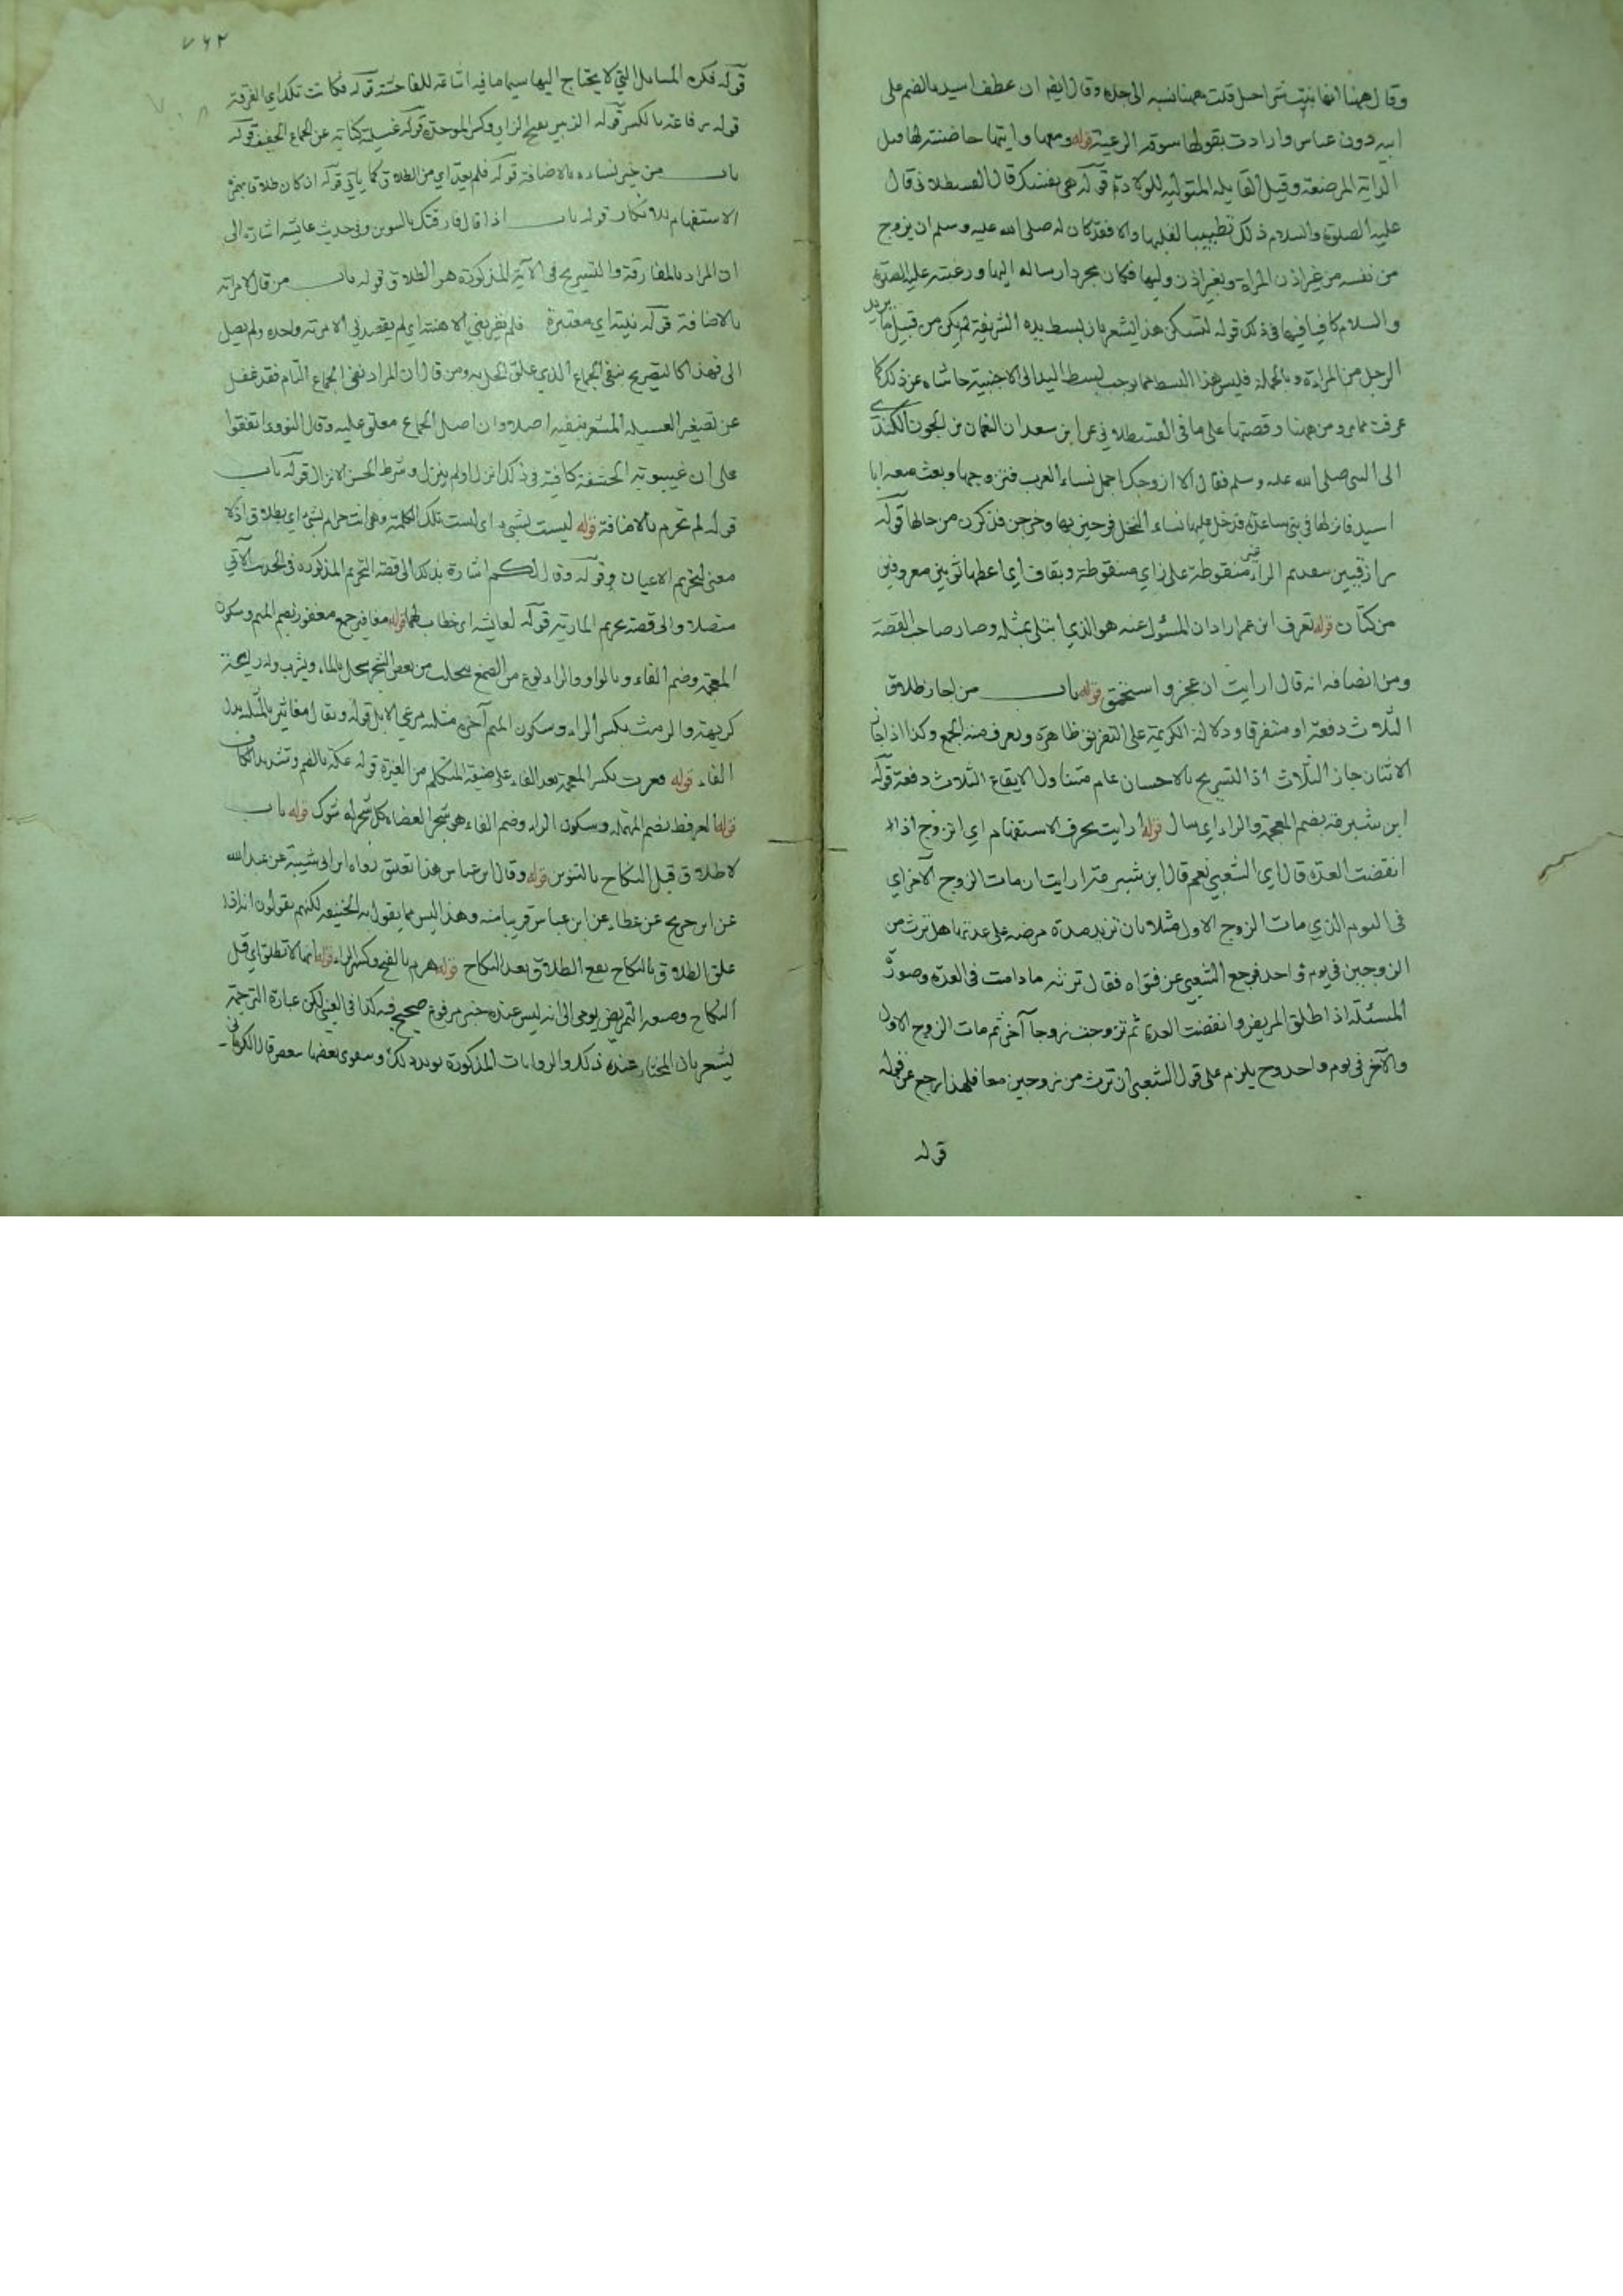 وقال همنا انها بنت شراحيل قلت همنا نسبه الى جده وقال ايضا ان عطف اسيد بالضم على
ابيه دون عباس وارادت بقولها سوقه الرعية قوله ومعها دايتها حاضنته لها قيل
الداية المرضعة وقيل القابله المتولية للولادة قوله هي نفسك قال القسطلاني قال
عليه الصلوة والسلام ذلك تطييبا لقلبها والا فقد كان له صلى الله عليه وسلم ان يزوج
من نفسه من غير اذن المراة وبغير اذن وليها فكان مجرد ارساله اليها ورغبته عليه الصلوة
والسلام كافيا فيها في ذلك قوله لتسكن هذا يشعر بان بسط يده الشريفة لم يكن من قبيل ما يريد
الرجل من المراءة وبالجملة فليس هذا البسط مما يوجب بسط اليد الى الاجنبية حاشاه عن ذلك كما
عرفت مما مر ومن همنا وقصتها على ما في القسطلاني عن ابن سعد ان النعمان بن الجون الكندي
الى النبي صلى الله عليه وسلم فقال الا ازوجك اجمل نساء العرب فتزوجها وبعث معه ابا
اسيد فانزلها في بني ساعدة فدخل عليها نساء فرحين بها وخرجن فذكرن من جمالها قوله
رازقيين بتقديم الراء غير منقوطة على زاي منقوطة وبقاف اي اعطها ثوبين معروفين
من كتان قوله تعرف ابن عمر اراد ان المسئول عنه هو الذي ابتلى بمثله وصار صاحب القصة
ومن انصافه انه قال ارايت ان عجز واستحمق قوله باب من اجاز طلاق
الثلاث دفعة او متفرقا ودلالة الكريمة على التفريق ظاهرة ويعرف منه الجمع وكذا اذا جاز
الاثنان جاز الثلاث اذ التسريح بالاحسان عام متناول لايقاع الثلاث دفعة قوله
ابن شبرمة بضم المعجمة والراء اي سال قوله ارايت بحرف الاستفهام اي اتزوج اذا
انقضت العدة قال اي الشعبي نعم قال ابن شبرمة ارايت ان مات الزوج الآخر اي
في اليوم الذي مات الزوج الاول مثلا بان تزيد مدة مرضه على عدتها هل ترث من
الزوجين في يوم واحد فرجع الشعبي عن فتواه فقال ترثه ما دامت في العدة وصورة
المسئلة اذا طلق المريض وانقضت العدة ثم تزوجت زوجا آخر ثم مات الزوج الاول
والآخر في يوم واحد وح يلزم على قول الشعبي ان ترث من زوجين معا فلهذا رجع عن قوله
قوله
٧٦٢
قوله فكره المسايل التي لا يحتاج اليها سيما ما فيه اشاعة للفاحشة قوله فكانت تلك اي الفرقة
قوله رفاعة بالكسر قوله الزبير بفتح الزاي وكسر الموحدة قوله عسيلته كناية عن الجماع قوله
باب من خير نساءه بالاضافة قوله فلم يعد اي من الطلاق كما ياتي قوله اي كان طلاقا بحذف
الاستفهام للانكار قوله باب اذا قال فارقتك بالتنوين وفي حديث عايشه اشارة الى
ان المراد بالمفارقة والتسريح في الآية المذكورة هو الطلاق قوله باب من قال لامراته
بالاضافة قوله نيته اي معتبرة فلم يقربني الا هنة اي لم يقصدني الا مرة واحدة ولم يصل
الى فهذا كالتصريح بنفي الجماع الذي علق الحل به ومن قال ان المراد نفي الجماع التام فقد غفل
عن تصغير العسيله المشعر بنفيه اصلا وان اصل الجماع معلق عليه وقال النووي اتفقوا
على ان غيبوبة الحشفة كافية في ذلك انزل او لم ينزل وشرط الحسن الانزال قوله باب
قوله لم تحرم بالاضافة قوله ليست بشيء اي ليست تلك الكلمة وهي انت حرام بشيء اي بطلاق اذ لا
معنى لتحريم الاعيان وقوله وقال لكم اشارة بذلك الى قصة التحريم المذكورة في الحديث الآتي
متصلا والى قصة تحريم المارية قوله لعايشه اي خطاب لهما قوله مغافير جمع مغفور بضم الميم وسكون
المعجمة وضم الفاء وبالواو والراء نوع من الصمغ يتحلب من بعض الشجر يحل بالماء ويشرب وله ريحة
كريهة والرمث بكسر الراء وسكون الميم آخره مثلثه مرعى الابل قوله ويقال مغاثير بالمثلثه بدل
الفاء قوله فغرت بكسر المعجمة بعد الفاء على صيغة المتكلم من الغيرة قوله عكة بالضم وتشديد الكاف
قوله العرفط بضم المهملة وسكون الراء وضم الفاء هو شجر العضاه كل شجر له شوك قوله باب
لا طلاق قبل النكاح بالتنوين قوله وقال ابن عباس هذا تعليق رواه ابن ابي شيبة عن عبد الله
عن ابن جريج عن عطاء عن ابن عباس قريبا منه وهذا ليس مما يقول به الحنيفه لكنهم يقولون انه اذا
علق الطلاق بالنكاح يقع الطلاق بعد النكاح قوله هرم بالفتح وكسر الراء قوله انها لا تطلق اي قبل
النكاح وصيغة التمريض يومي الى انه ليس عنده خبر مرفوع صحيح فيه كذا في العيني لكن عبارة الترجمة
يشعر بان المختار عنده ذلك والروايات المذكورة يويد ذلك ويقوي بعضها بعضها قال الكرماني